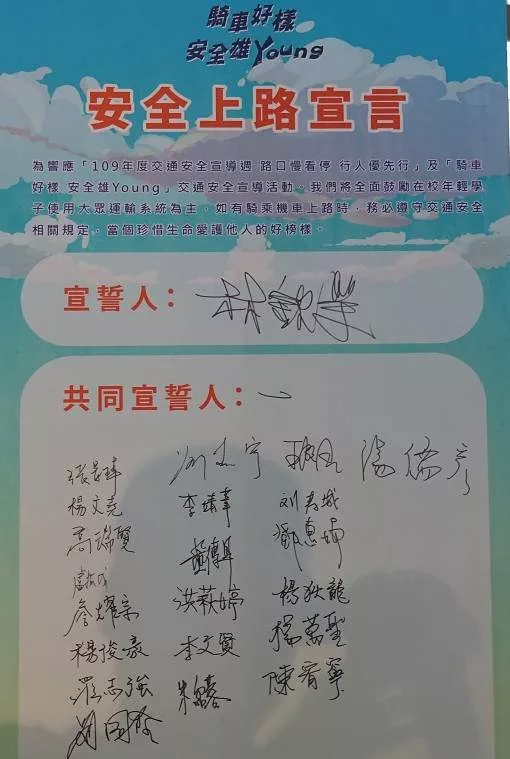 騎車好樣
安全雄Young
安全上路宣言
為響應「109年度交通安全宣導週 路口慢看停 行人優先行」及「騎車
好樣 安全雄Young」交通安全宣導活動。我們將全面鼓勵在校年輕學
子使用大眾運輸系統為主。如有騎乘機車上路時，務必遵守交通安全
相關規定。當個珍惜生命愛護他人的好榜樣。
宣誓人：林欽榮
共同宣誓人：
楊文堯 李靖葦
高瑞賢 鄧惠
詹耀宗 洪萩婷 楊狄龍
楊俊豪 李文賢 楊萬聖
羅志強 陳宥寧